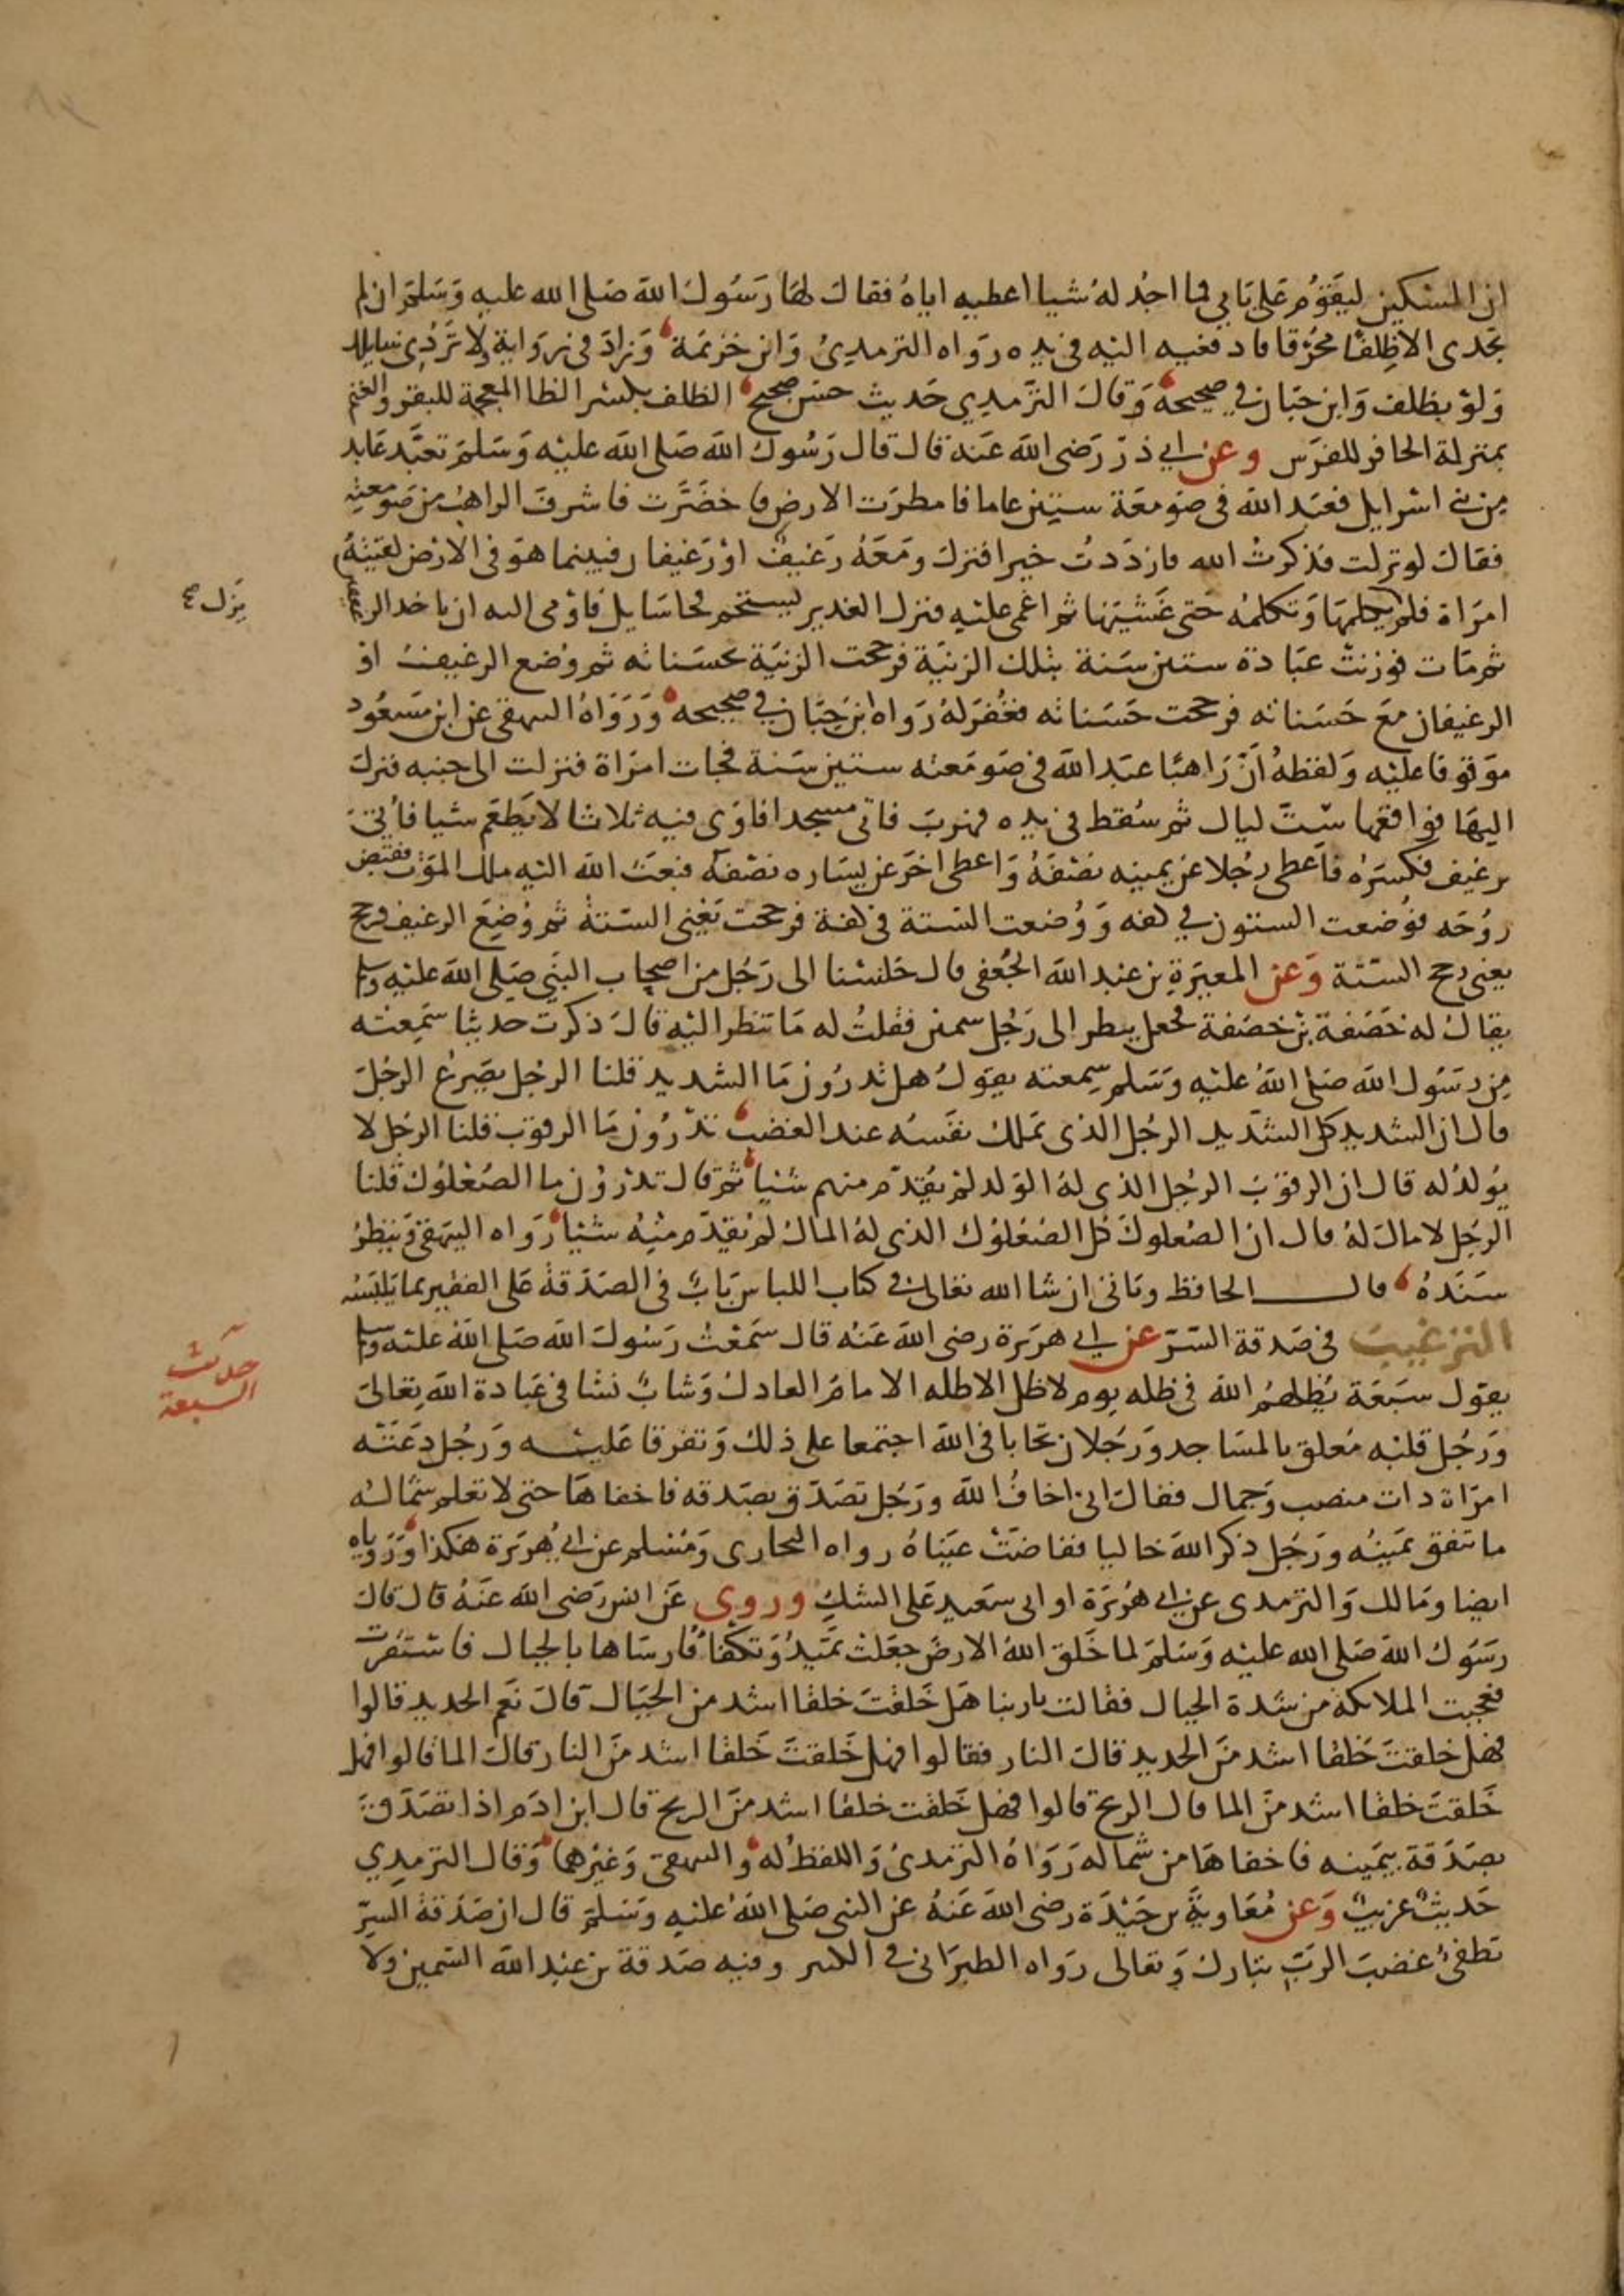 ان المسكين ليقوم على بابي فما اجد له شيا اعطيه اياه فقال لها رسول الله صلى الله عليه وسلم ان لم
تجدي الا ظلفا محرقا فادفعيه اليه في يده رواه الترمذي وابن خزيمة وزاد في رواية لا تردي سايلك
ولو بظلف وابن حبان في صحيحه وقال الترمدي حديث حسن صحيح الظلف بكسر الظا المعجمة للبقر والغنم
بمنزلة الحافر للفرس وعن ابي ذر رضى الله عنه قال قال رسول الله صلى الله عليه وسلم تعبد عابد
من بني اسرايل فعبد الله في صومعة ستين عاما فامطرت الارض فاخضرت فاشرف الراهب من صومعته
فقال لو نزلت فذكرت الله فازددت خيرا فنزل ومعه رغيف او رغيفان فبينما هو في الارض لقيته
امراة فلم يزل يكلمها وتكلمه حتى غشيها ثم اغمى عليه فنزل الغدير ليستحم فجا سايل فاومى اليه ان ياخد الرغيفين
ثم مات فوزنت عبادة ستين سنة بتلك الزنية فرجحت الزنية بحسناته ثم وضع الرغيف او
الرغيفان مع حسناته فرجحت حسناته فغفر له رواه ابن حبان في صحيحه ورواه البيهقي عن ابن مسعود
موقوفا عليه ولفظه ان راهبا عبد الله في صومعته ستين سنة فجات امراة فنزلت الى جنبه فنزل
اليها فواقعها ست ليال ثم سقط في يده فهرب فاتى مسجدا فاوى فيه ثلاثا لا يطعم شيا فاتي
برغيف فكسره فاعطى رجلا عن يمينه نصفه واعطى اخر عن يساره نصفه فبعث الله اليه ملك الموت فقبض
روحه فوضعت الستون في كفه ووضعت الستة في كفة فرجحت يعني الستة ثم وضع الرغيف فرجح
يعني رجح الستة وعن المغيرة بن عبد الله الجعفي قال جلسنا الى رجل من اصحاب النبي صلى الله عليه وسلم
يقال له خصفة بن خصفة فجعل ينظر الى رجل سمين فقلت له ما تنظر اليه قال ذكرت حديثا سمعته
من رسول الله صلى الله عليه وسلم سمعته يقول هل تدرون ما الشديد قلنا الرجل يصرع الرجل
قال ان الشديد كل الشديد الرجل الذي يملك نفسه عند الغضب تدرون ما الرقوب قلنا الرجل لا
يولد له قال ان الرقوب الرجل الذي له الولد لم يقدم منهم شيا ثم قال تدرون ما الصعلوك قلنا
الرجل لا مال له قال ان الصعلوك كل الصعلوك الذي له المال لم يقدم منه شيا رواه البيهقي وينظر
سنده قال الحافظ وياتي ان شا الله تعالى في كتاب اللباس باب في الصدقة على الفقير بما يلبسه
الترغيب في صدقة السر عن ابي هريرة رضى الله عنه قال سمعت رسول الله صلى الله عليه وسلم
يقول سبعة يظلهم الله في ظله يوم لا ظل الا ظله الامام العادل وشاب نشا في عبادة الله تعالى
ورجل قلبه معلق بالمساجد ورجلان تحابا في الله اجتمعا على ذلك وتفرقا عليه ورجل دعته
امراة دات منصب وجمال فقال اني اخاف الله ورجل تصدق بصدقه فاخفاها حتى لا تعلم شماله
ما تنفق يمينه ورجل ذكر الله خاليا ففاضت عيناه رواه البخارى ومسلم عن ابي هريرة هكذا وروياه
ايضا ومالك والترمدى عن ابي هريرة او ابى سعيد على الشك وروى عن انس رضى الله عنه قال قال
رسول الله صلى الله عليه وسلم لما خلق الله الارض جعلت تميد وتكفا فارساها بالجبال فاستقرت
فعجبت الملايكة من شدة الجبال فقالت يا ربنا هل خلقت خلقا اشد من الجبال قال نعم الحديد قالوا
فهل خلقت خلقا اشد من الحديد قال النار فقالوا فهل خلقت خلقا اشد من النار قال الما قالوا فهل
خلقت خلقا اشد من الما قال الريح قالوا فهل خلقت خلقا اشد من الريح قال ابن ادم اذا تصدق
بصدقة بيمينه فاخفاها من شماله رواه الترمدى واللفظ له والبيهقي وغيرهما وقال الترمدي
حديث غريب وعن معاوية بن حيدة رضى الله عنه عن النبي صلى الله عليه وسلم قال ان صدقة السر
تطفئ غضب الرب تبارك وتعالى رواه الطبراني في الكبير وفيه صدقة بن عبد الله السمين ولا
يزل صح
حديث
السبعة